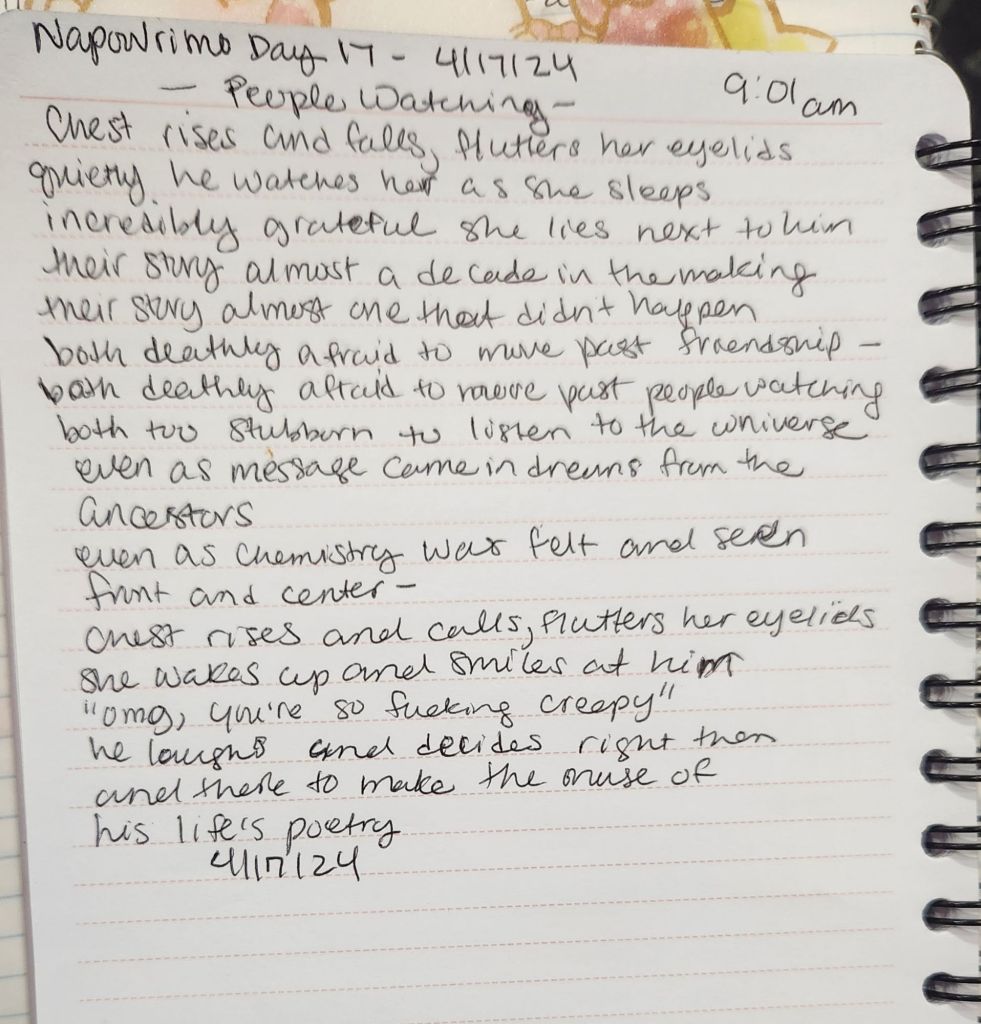 NapoWrimo Day 17 - 4/17/24
9:01 am
- People Watching -
Chest rises and falls, flutters her eyelids
quietly he watches her as she sleeps
incredibly grateful she lies next to him
their story almost a decade in the making
their story almost one that didn't happen
both deathly afraid to move past friendship -
both deathly afraid to move past people watching
both too stubborn to listen to the universe
even as message came in dreams from the
ancestors
even as chemistry was felt and seen
front and center -
chest rises and calls, flutters her eyelids
she wakes up and smiles at him
"omg, you're so fucking creepy"
he laughs and decides right then
and there to make the muse of
his life's poetry
4/17/24